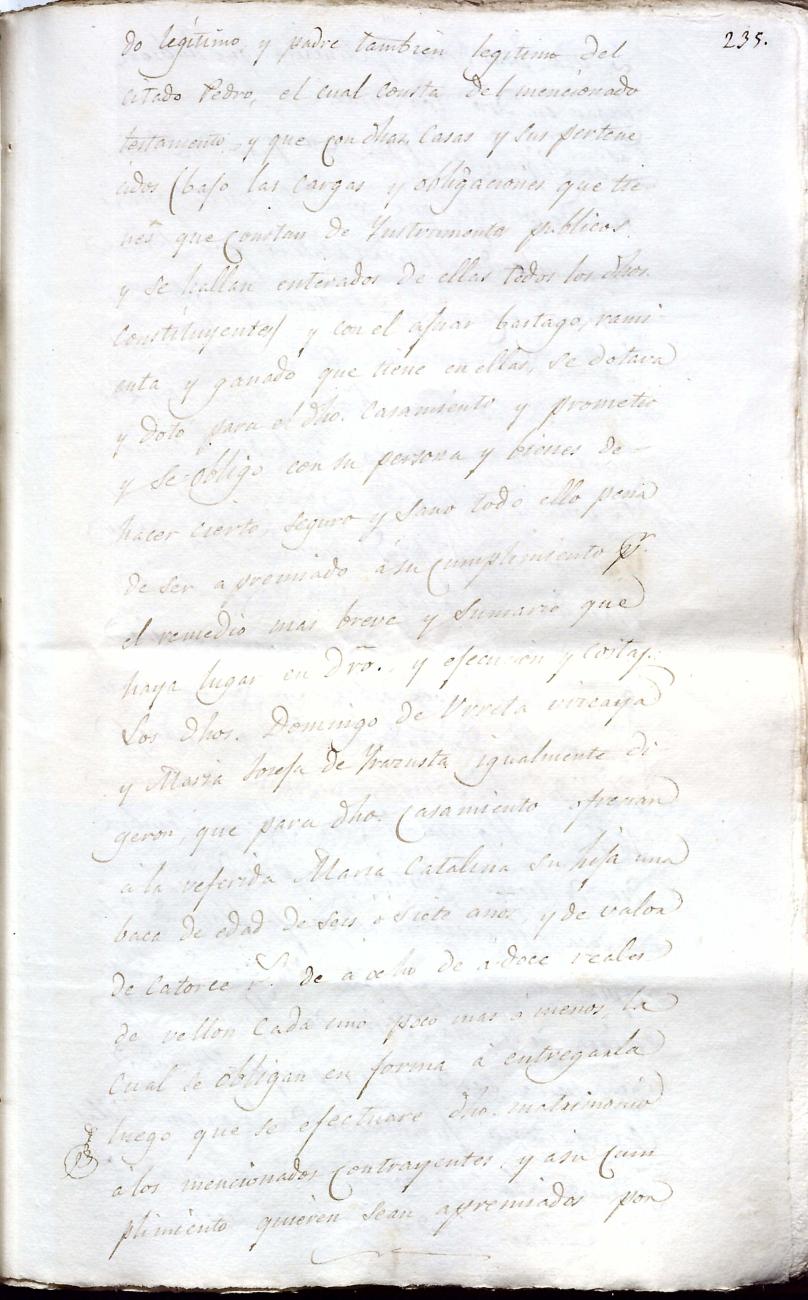 235.
do legitimo y padre tambien legitimo del
citado Pedro, el cual consta del mencionado
testamento, y que con dhas. Casas y sus pertene
cidos (bajo las cargas y obligaciones que tie-
nen que constan de Ynstrumentos publicos.
y se hallan enterados de ellas todos los dhos.
Constituyentes) y con el ajuar bastago, rami-
enta y ganado que tiene en ellas, se dotava
y doto para el dho. Casamiento y prometio
y se obligo con su persona y bienes de-
hacer cierto, seguro y sano todo ello pena
de ser apremiado á su cumplimiento pr.
el remedio mas breve y sumario que
haya lugar en Dro., y ejecucion y costas.
Los dhos. Domingo de Urreta vizcaya
y Maria Josefa de Yrazusta igualmente di
geron, que para dho. Casamiento ofrecian
a la referida Maria Catalina su hija una
baca de edad de seis ó siete años, y de valor
de Catorce rs. de a ocho de a doce reales
de vellon cada uno poco mas ó menos, la
Cual se obligan en forma á entregarla
luego que se efectuare dho. matrimonio
á los mencionados Contrayentes, y a su Cum
plimiento quieren sean apremiados por